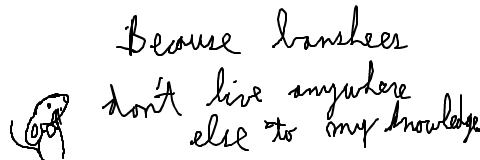 Because banshees
don't live anywhere
else to my knowledge